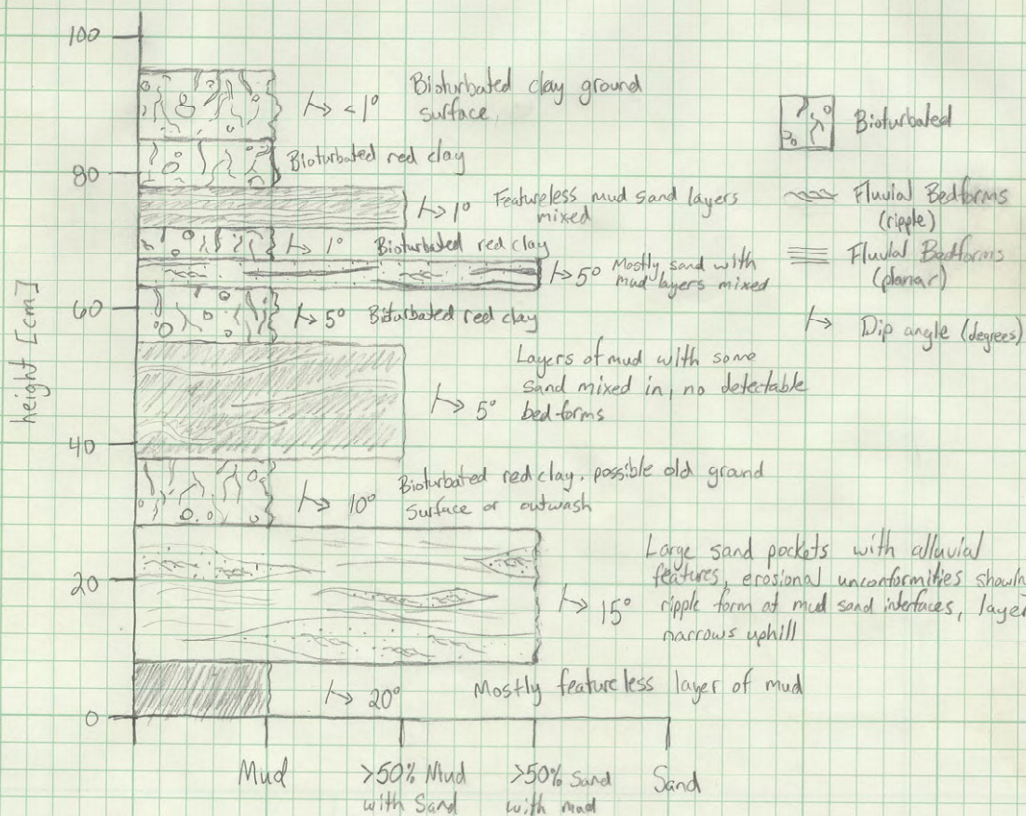 100
80
60
40
20
0
height [cm]
< 1°
Bioturbated clay ground
surface
Bioturbated red clay
1°
Featureless mud sand layers
mixed
1°
Bioturbated red clay
5°
Mostly sand with
mud layers mixed
5°
Bioturbated red clay
Layers of mud with some
sand mixed in, no detectable
5°
bedforms
Bioturbated red clay, possible old ground
10°
surface or outwash
Large sand pockets with alluvial
features, erosional unconformities shown
15°
ripple form at mud sand interfaces, layer
narrows uphill
20°
Mostly featureless layer of mud
Mud
>50% Mud
with Sand
>50% Sand
with mud
Sand
Bioturbated
Fluvial Bedforms
(ripple)
Fluvial Bedforms
(planar)
Dip angle (degrees)